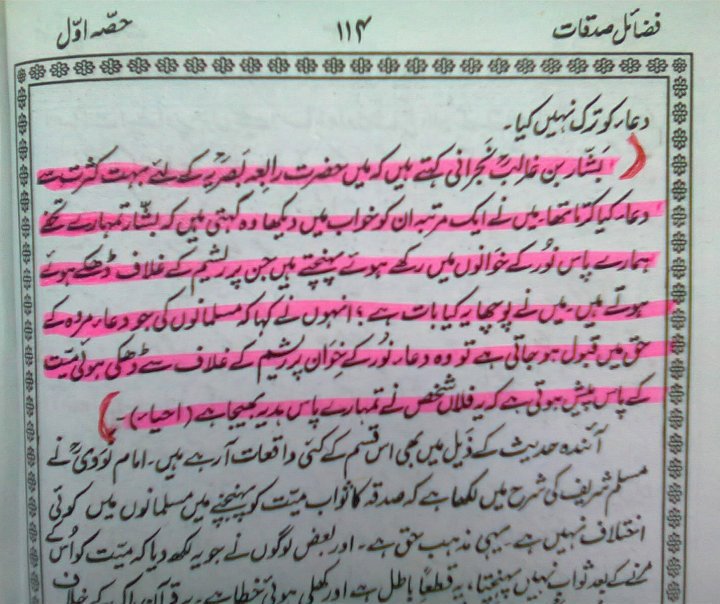 فضائل صدقات ۱۱۴ حصّہ اوّل
دعاء کو ترک نہیں کیا۔
بَشّار بن غالبؒ نَجرانی کہتے ہیں کہ میں حضرت رابِعہ بَصَرِیّہ کے لئے بہت کثرت سے
دعاء کیا کرتا تھا۔ میں نے ایک مرتبہ ان کو خواب میں دیکھا وہ کہتی ہیں کہ بشّار تمہارے تحفے
ہمارے پاس نُور کے خوانوں میں رکھے ہوئے پہنچتے ہیں جن پر ریشم کے غلاف ڈھکے ہوئے
ہوتے ہیں۔ میں نے پوچھا یہ کیا بات ہے؛ انہوں نے کہا کہ مسلمانوں کی جو دعاء مردہ کے
حق میں قبول ہو جاتی ہے تو وہ دعاء نُور کے خِوَان پر ریشم کے غلاف سے ڈھکی ہوئی میّت
کے پاس پیش ہوتی ہے کہ یہ فلاں شخص نے تمہارے پاس ہدیہ بھیجا ہے (احیاء)۔
آئندہ حدیث کے ذَیل میں بھی اس قسم کے کئی واقعات آرہے ہیں۔ امام نَوَوِیؒ نے
مسلم شریف کی شرح میں لکھا ہے کہ صدقہ کا ثواب میّت کو پہنچنے میں مسلمانوں میں کوئی
اختلاف نہیں ہے۔ یہی مذہب حق ہے۔ اور بعض لوگوں نے جو یہ لکھ دیا کہ میّت کو اُس کے
مرنے کے بعد ثواب نہیں پہنچتا، یہ قطعًا باطل ہے اور کھلی ہوئی خطا ہے۔ یہ قرآن پاک کے خلاف